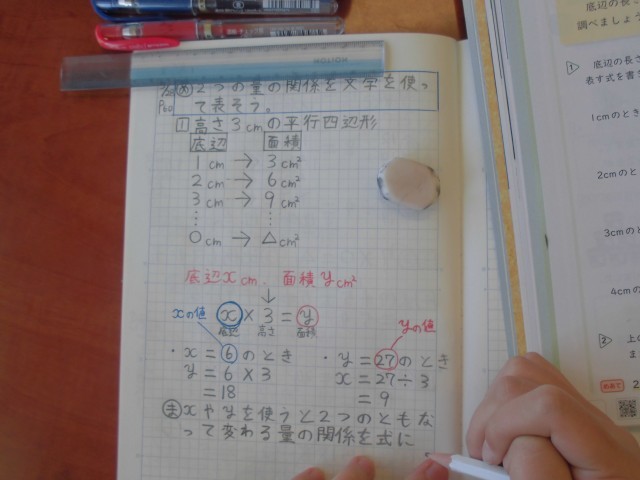 HOLTON
め 2つの量の関係を文字を使っ
て表そう。
P20
1 高さ3cmの平行四辺形
底辺 面積
1cm → 3cm²
2cm → 6cm²
3cm → 9cm²
⋮ ⋮
○cm → △cm²
底辺xcm、面積ycm²
↓
xの値 x×3=y
底辺 高さ 面積
yの値
・x=6のとき
y=6×3
=18
・y=27のとき
x=27÷3
=9
ま xやyを使うと2つのともな
って変わる量の関係を式に
底辺の長
調べましょう
1 底辺の長さ
表す式を書
1cmのと
2cmのと
3cmのと
4cmのと
3 上の
2